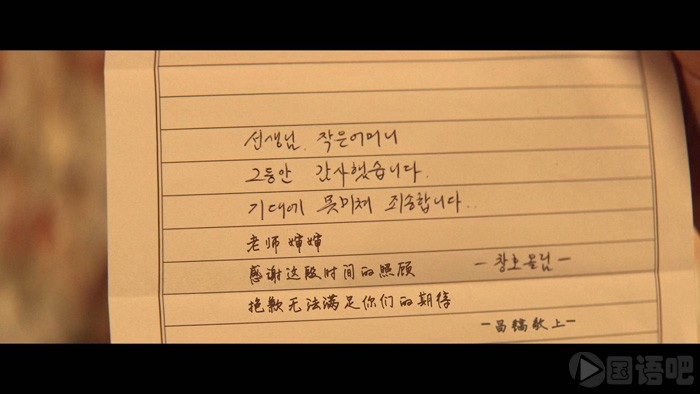 선생님, 작은어머니
그동안 감사했습니다.
기대에 못미쳐 죄송합니다..
老师 婶婶
感谢这段时间的照顾
- 창호 올님 -
抱歉无法满足你们的期待
- 昌镐敬上 -
国语吧